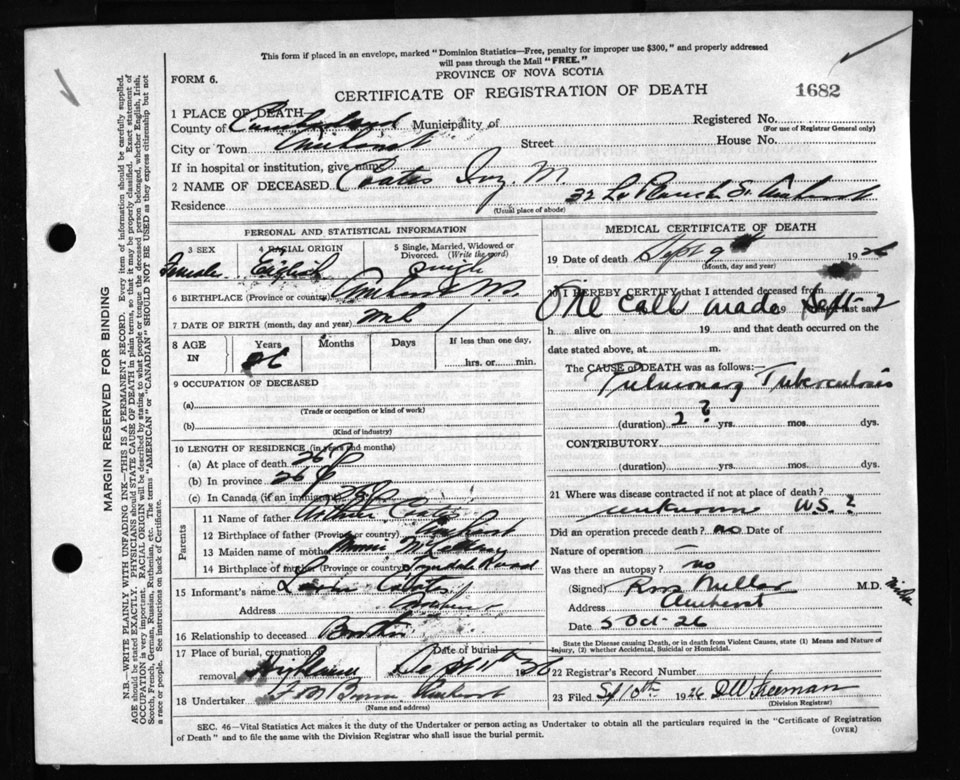 This form if placed in an envelope, marked "Dominion Statistics—Free, penalty for improper use $300," and properly addressed
will pass through the Mail "FREE."
PROVINCE OF NOVA SCOTIA
FORM 6.
CERTIFICATE OF REGISTRATION OF DEATH
1682
1 PLACE OF DEATH—
County of Cumberland Municipality of
Registered No.
(For use of Registrar General only)
City or Town Amherst Street House No.
If in hospital or institution, give name
2 NAME OF DECEASED Coates Ivy M.
Residence 32 La Planch St Amherst
(Usual place of abode)
PERSONAL AND STATISTICAL INFORMATION
3 SEX
Female
4 RACIAL ORIGIN
English
5 Single, Married, Widowed or Divorced. (Write the word)
Single
6 BIRTHPLACE (Province or country) Amherst N.S.
7 DATE OF BIRTH (month, day and year)
8 AGE IN Years Months Days If less than one day,
26 hrs. or min.
9 OCCUPATION OF DECEASED
(a)
(Trade or occupation or kind of work)
(b)
(Kind of industry)
10 LENGTH OF RESIDENCE (in years and months)
(a) At place of death 26
(b) In province 26
(c) In Canada (if an immigrant) 26
Parents
11 Name of father Arthur Coates
12 Birthplace of father (Province or country) Amherst
13 Maiden name of mother
14 Birthplace of mother (Province or country) Road
15 Informant's name Coates
Address
16 Relationship to deceased Brother
17 Place of burial, cremation or removal Highland
Date of burial Sept 11th 1926
18 Undertaker Brown Amherst
(Name and address)
MEDICAL CERTIFICATE OF DEATH
19 Date of death Sept 9th 1926
(Month, day and year)
20 I HEREBY CERTIFY that I attended deceased from
One call made Sept-2
19 last saw
h alive on 19 and that death occurred on the
date stated above, at m.
The CAUSE of DEATH was as follows:—
Pulmonary Tuberculosis
(duration) 2 ? yrs. mos. dys.
CONTRIBUTORY
(duration) yrs. mos. dys.
21 Where was disease contracted if not at place of death?
unknown U.S.?
Did an operation precede death? no Date of
Nature of operation —
Was there an autopsy? no
(Signed) Ross Millar M.D.
Address Amherst
Date 5 Oct-26
State the Disease causing Death, or in death from Violent Causes, state (1) Means and Nature of
Injury, (2) whether Accidental, Suicidal or Homicidal.
22 Registrar's Record Number
23 Filed 10th 1926 DW Freeman
(Division Registrar)
SEC. 46—Vital Statistics Act makes it the duty of the Undertaker or person acting as Undertaker to obtain all the particulars required in the "Certificate of Registration
of Death" and to file the same with the Division Registrar who shall issue the burial permit.
(OVER)
MARGIN RESERVED FOR BINDING
N.B.—WRITE PLAINLY WITH UNFADING INK—THIS IS A PERMANENT RECORD. Every item of information should be carefully supplied.
AGE should be stated EXACTLY. PHYSICIANS should STATE CAUSE OF DEATH in plain terms, so that it may be properly classified. Exact statement of
OCCUPATION is very important. RACIAL ORIGIN will be described by stating to what people or tongue the deceased person belonged, whether English, Irish,
Scotch, French, German, Russian, Ruthenian, etc. The terms "AMERICAN" or "CANADIAN" SHOULD NOT BE USED as they express citizenship but not
a race or people. See instructions on back of Certificate.